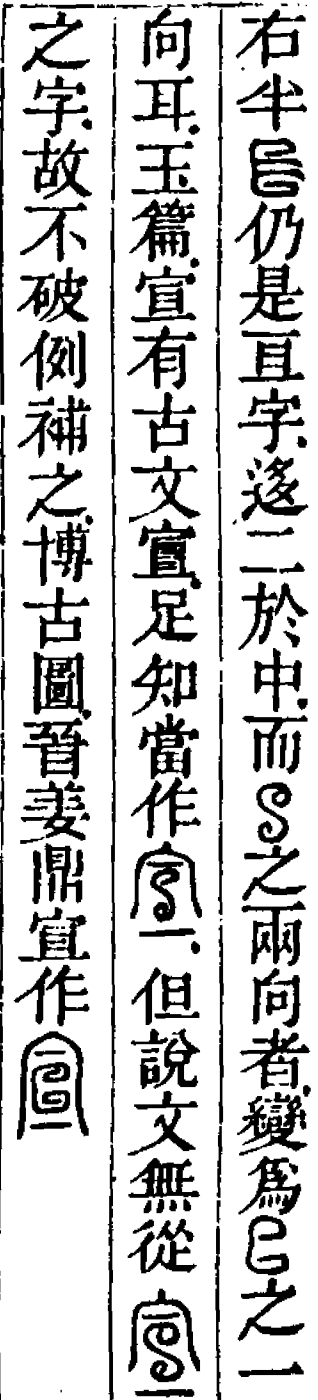 右半仍是亘字迻二於中而之兩向者變爲之一
向耳玉篇宣有古文足知當作但說文無從
之字故不破例補之博古圖晉姜鼎宣作